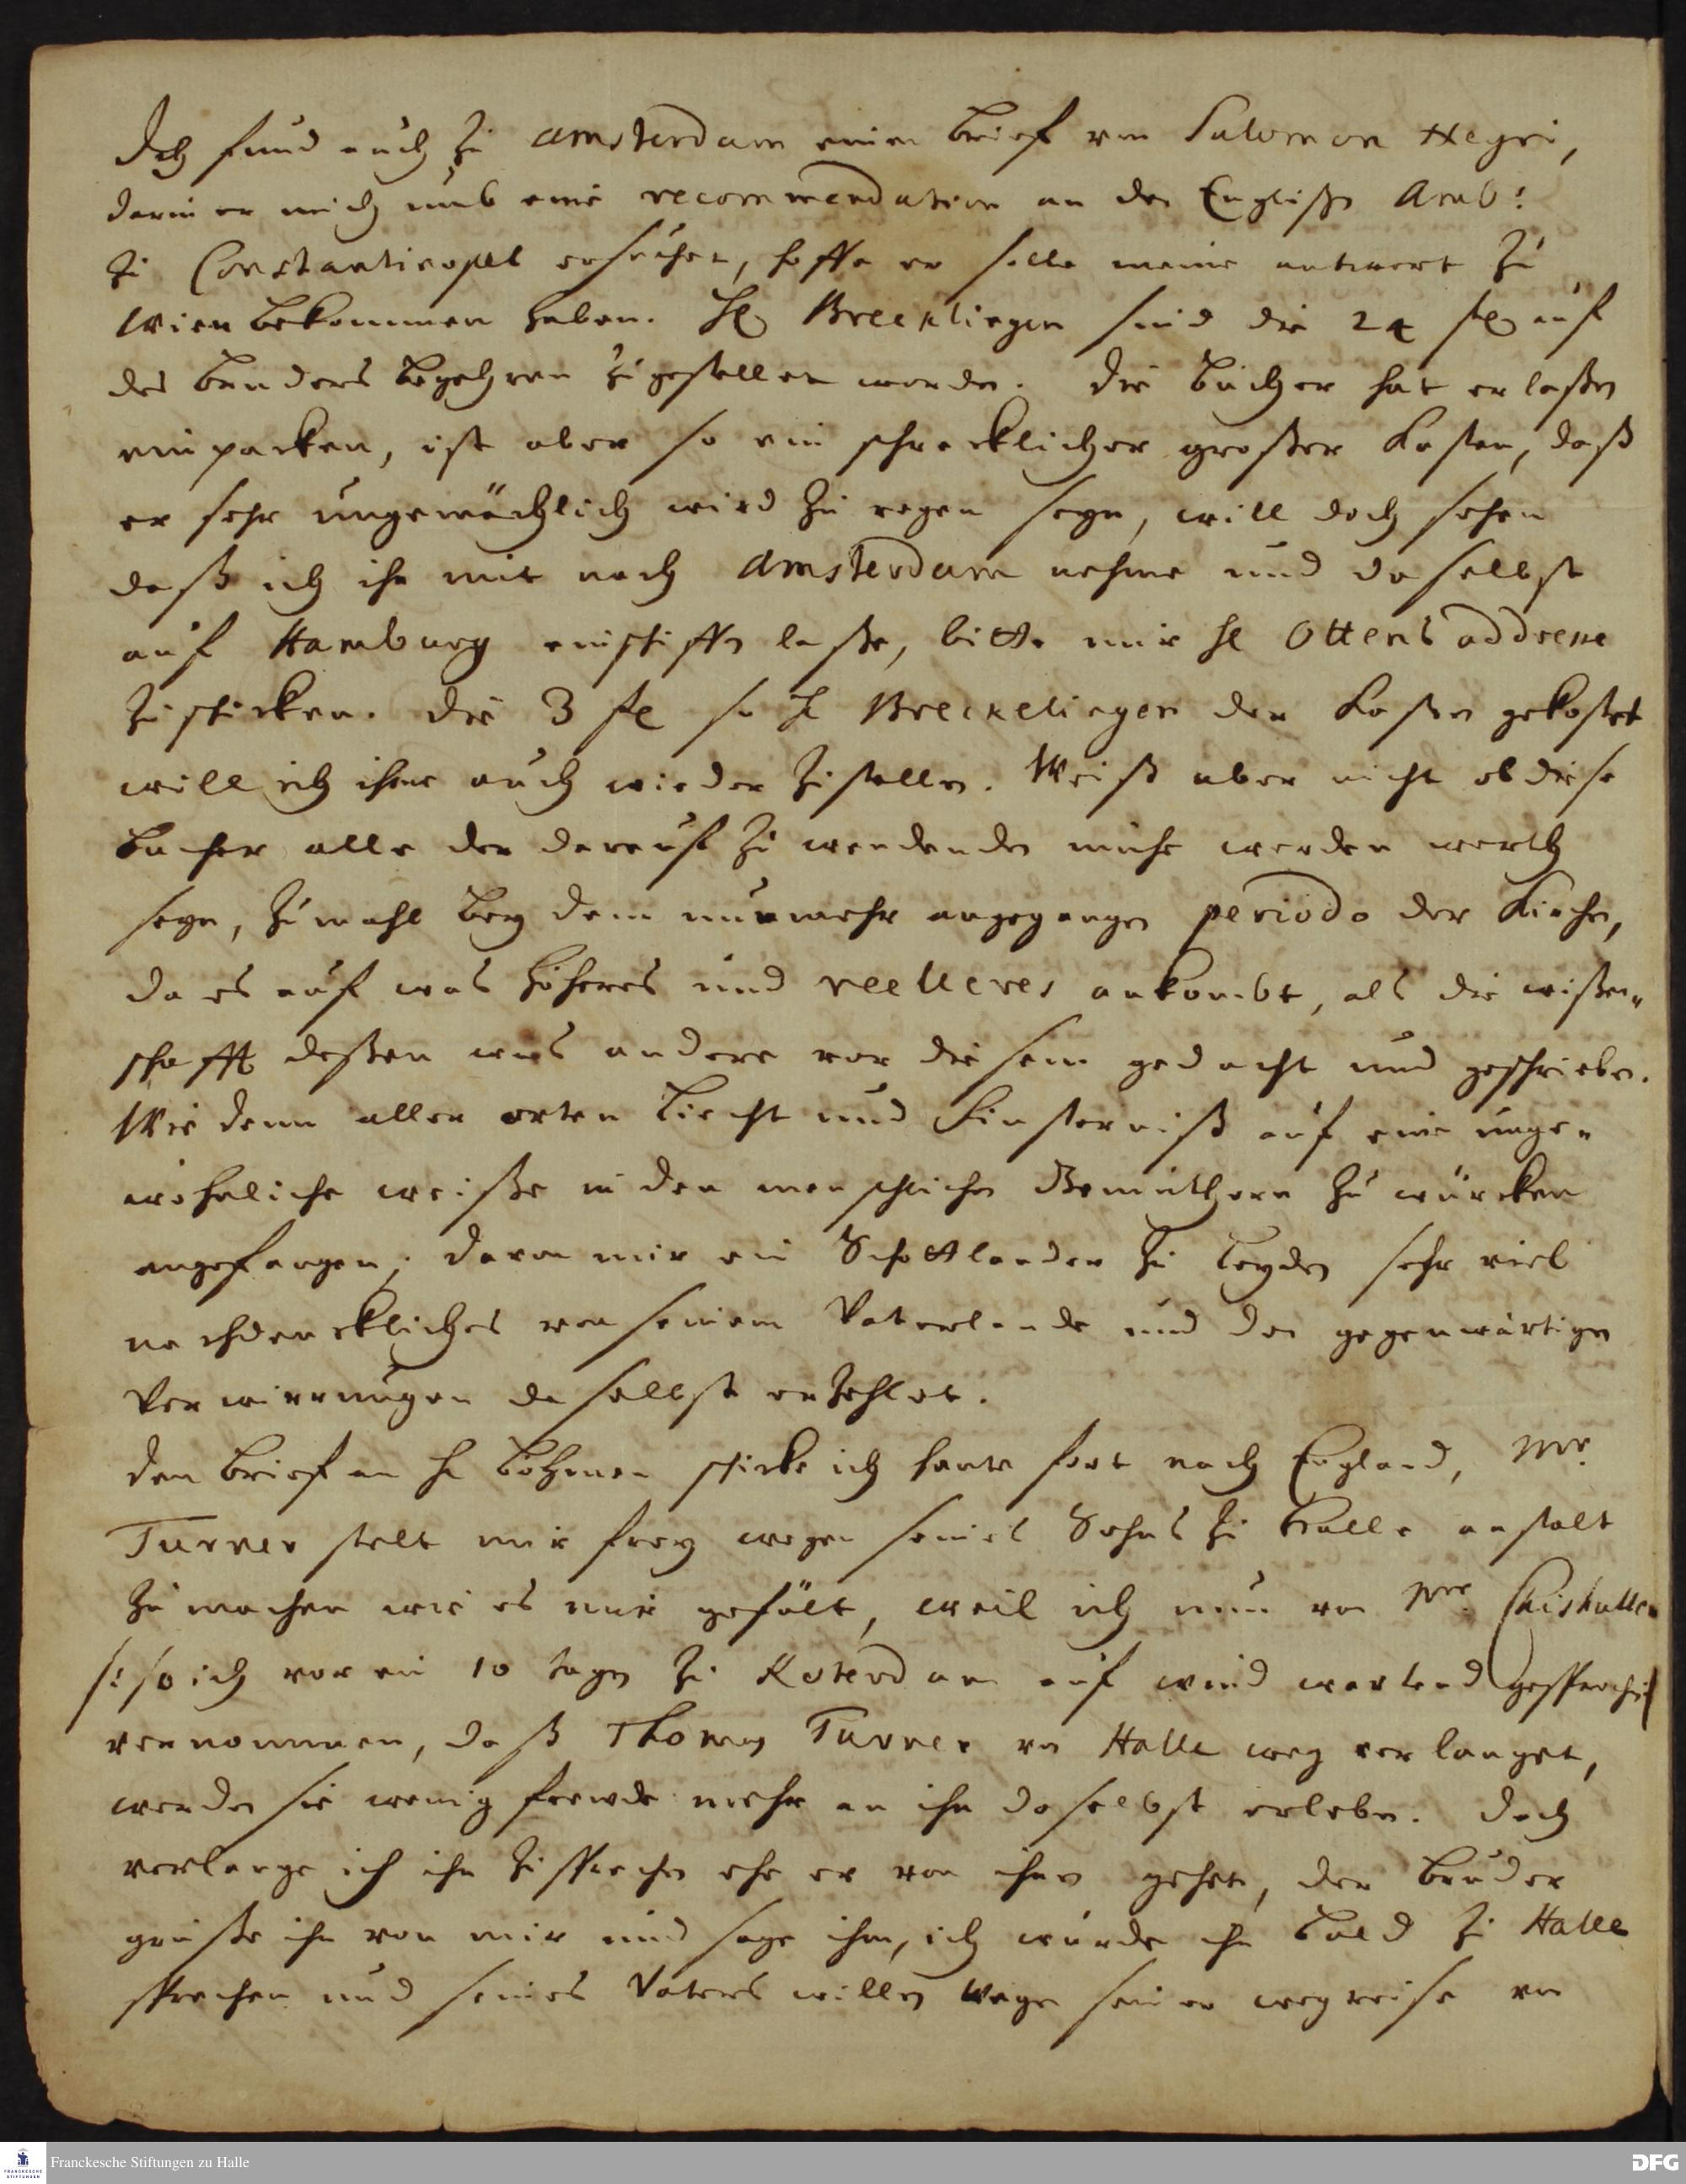 Ich fund auch zu Amsterdam einen brief von Salomon Negri,
darin er mich umb eine recommendation an den Englischen Amb:
zu Constantinopel ersuchet, hoffe er solle meine antwort zu
Wien bekommen haben. H. Brecklingen sind die 24 fl. auf
des bruders begehren zugestellet worden. Die bücher hat er laßen
einpacken, ist aber so ein schrecklicher großer Kasten, daß
er sehr ungemächlich wird zu regen seyn, will doch sehen
daß ich ihn mit nach Amsterdam nehme und daselbst
auf Hamburg einschiffen laße, bitte mir H. Ottens addresse
zu schicken. Die 3 fl. so H. Breckelingen der Kasten gekostet
will ich ihme auch wieder zustellen. Weiß aber nicht ob diese
bücher alle der darauf zu wendenden mühe werden werth
seyn, zumahl bey dem nunmehr angegangen periodo der Kirchen,
da es auf was höheres und reelleres ankombt, als die wißen„
schafft deßen was andere vor diesem gedacht und geschrieben.
Wie denn aller orten Liecht und Finsterniß auf eine unge„
wöhnliche weiße in den menschlichen Gemüthern zu würcken
angefangen; davon mir ein Schottlander zu Leyden sehr viel
nachdenckliches von seinem Vaterlande und den gegenwärtigen
Verwirrungen daselbst erzehlet.
Den brief an H. Böhmen schicke ich heute fort nach England, Mr.
Turner stelt mir frey wegen seines Sohns zu Halle anstalt
zu machen wie es mir gefält, weil ich nun von Mr.
/: so ich vor ein 10 tagen zu Roterdam auf wind wartend gesprochen
vernommen, daß Thomas Turner von Halle weg verlanget,
werden sie wenig freude mehr an ihn daselbst erleben. Doch
verlange ich ihn zu sprechen ehe er von ihnen gehet, der bruder
grüße ihn von mir und sage ihm, ich würde ihn bald zu Halle
sprechen und seines Vaters willen wegen seiner wegreise von